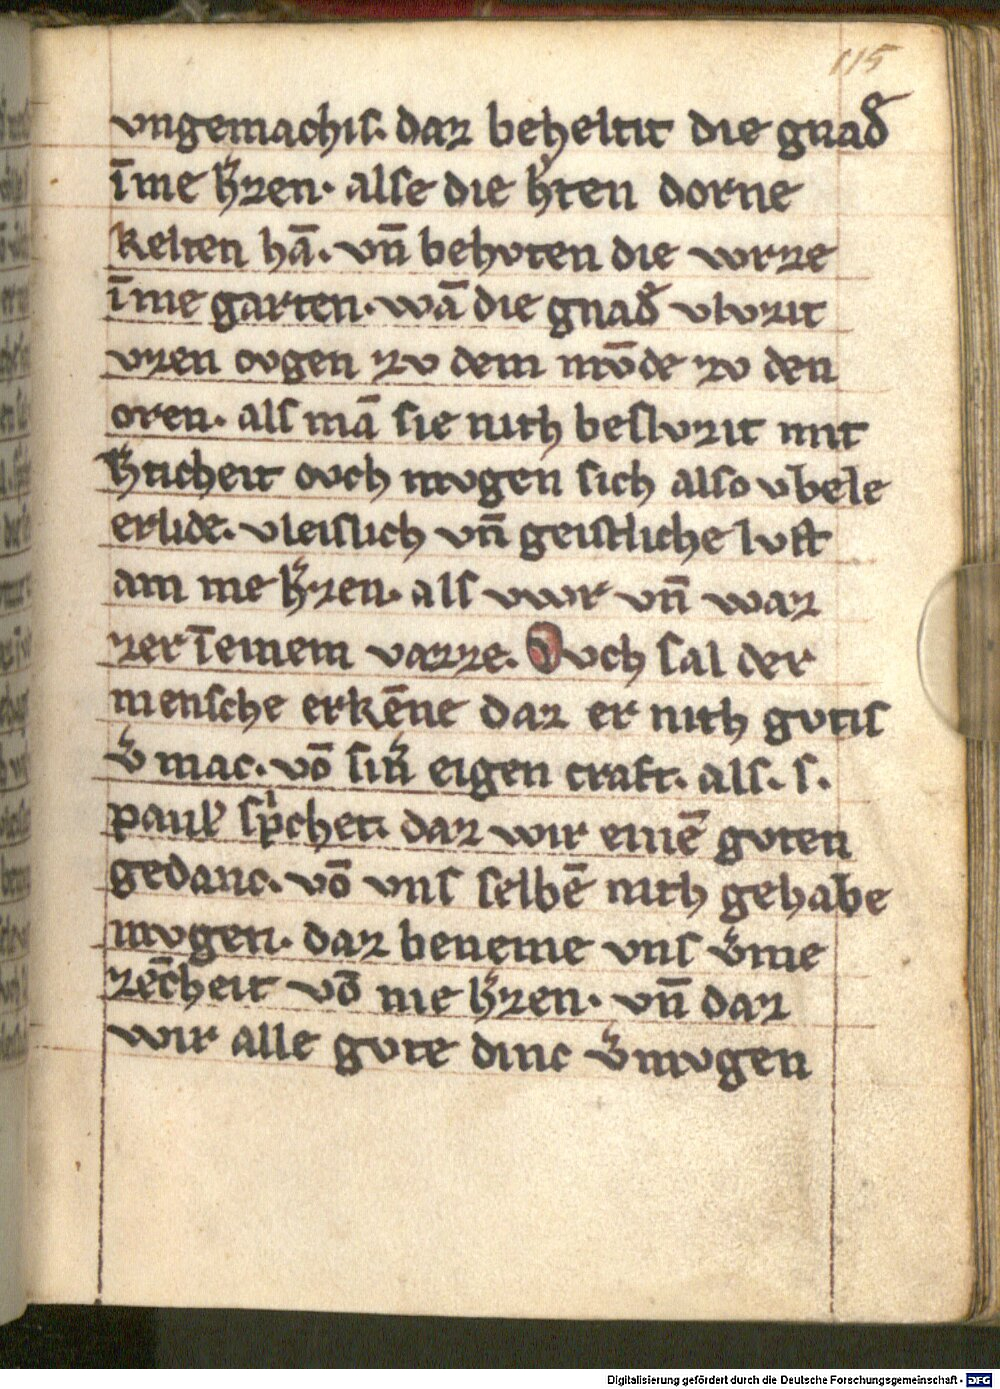 115
vngemachis. daz beheltit die gnad᷑
ī me h᷑zen. alse die h᷑ten dorne
kelten hā. vn̄ behvten die wrze
ī me garten. wā die gnad᷑ vlvzit
vzen ovgen zv dem mv̄de zv den
oren. als mā sie nith beslvzit mit
h᷑ticheit ovch mvgen sich also vbele
erlide. vleislich vn̄ geistliche lvst
am me h᷑zen. als vwr vn̄ waz
zer ī einem vazze. Ovch sal der
mensche erkēne daz er nith gvtis
v᷑mac. vō sin᷑ eigen craft. als. s.
paul᷒ spͥchet. daz wir einē gvten
gedanc. vō vns selbē nith gehabe
mvgen. daz beneme vns v᷑me
zec̄heit vō me h᷑zen. vn̄ daz
wir alle gvte dinc v᷑mvgen
Digitalisierung gefördert durch die Deutsche Forschungsgemeinschaft - DFG